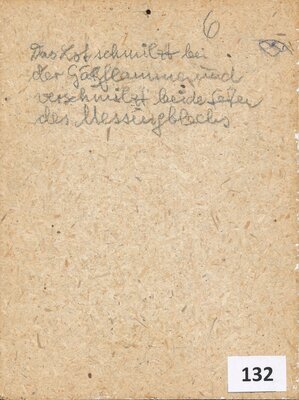 6
Das Lot schmilzt bei
der Gasflamme und
verschmilzt beide Teile
des Messingblechs
132